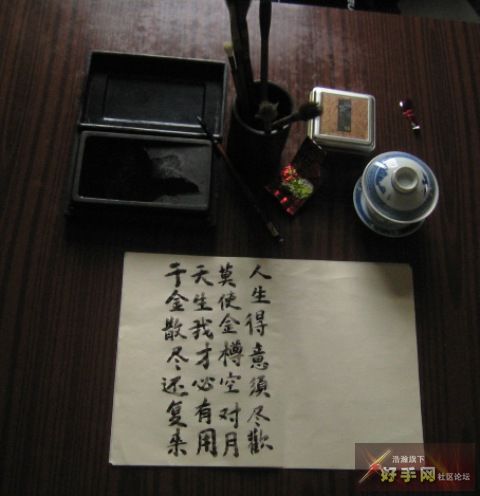 人生得意须尽歡
莫使金樽空对月
天生我才必有用
千金散尽还复来
浩瀚旗下
好手网社区论坛